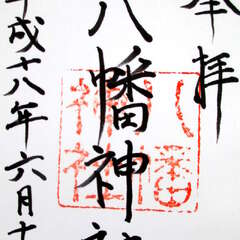 奉拝
八幡神社
平成十八年六月十